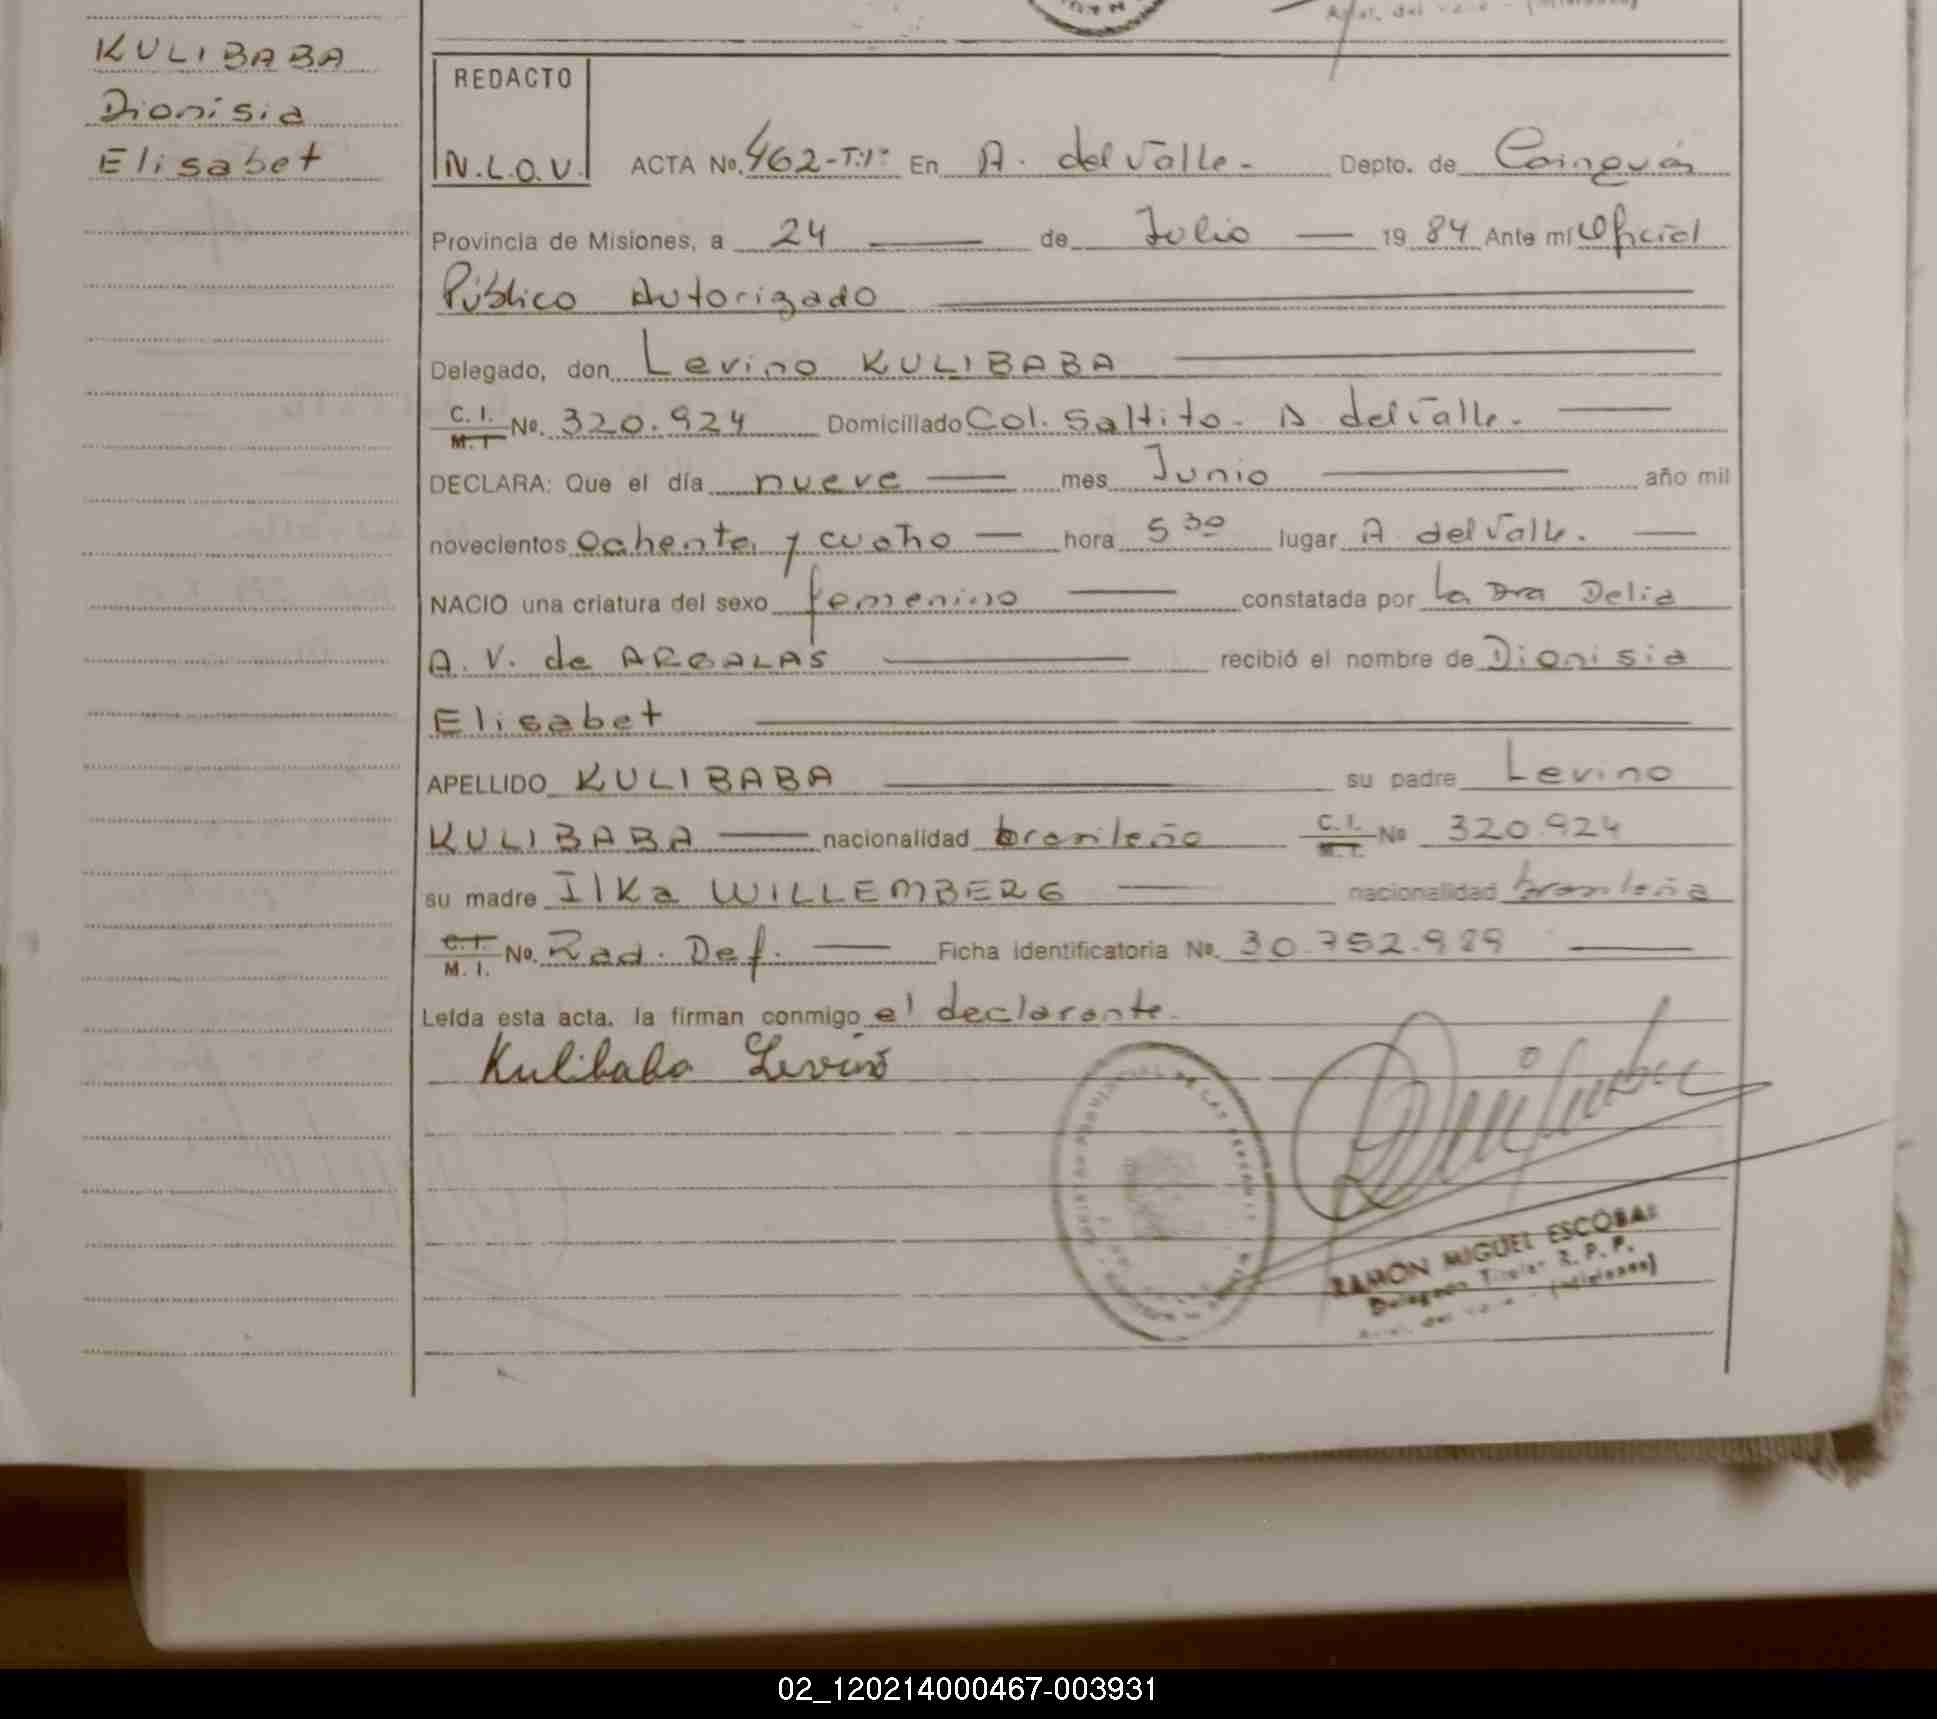 KULIBABA
Dionisia
Elisabet
REDACTO
N.L.O.V.
ACTA No. 462-T.1º En A. del Valle.- Depto. de Cainguás
Provincia de Misiones, a 24 de Julio 19 84 Ante mí Oficial
Público Autorizado
Delegado, don Levino KULIBABA
C. I. M. I No. 320.924 Domiciliado Col. Saltito - A. del Valle.-
DECLARA: Que el día nueve mes Junio año mil
novecientos ochenta y cuatro hora 5 30 lugar A. del Valle.
NACIO una criatura del sexo femenino constatada por la Dra Delia
A. V. de ARGALAS recibió el nombre de Dionisia
Elisabet
APELLIDO KULIBABA su padre Levino
KULIBABA nacionalidad brasileño C. I. M. I. No 320.924
su madre Ilka WILLEMBERG nacionalidad brasileña
C. I. M. I. No. Rad. Def. Ficha identificatoria No. 30.752.989
Leída esta acta, la firman conmigo el declarante.
Kulibaba Levino
RAMON MIGUEL ESCOBAR
Delegado Titular R. P. P.
02_120214000467-003931